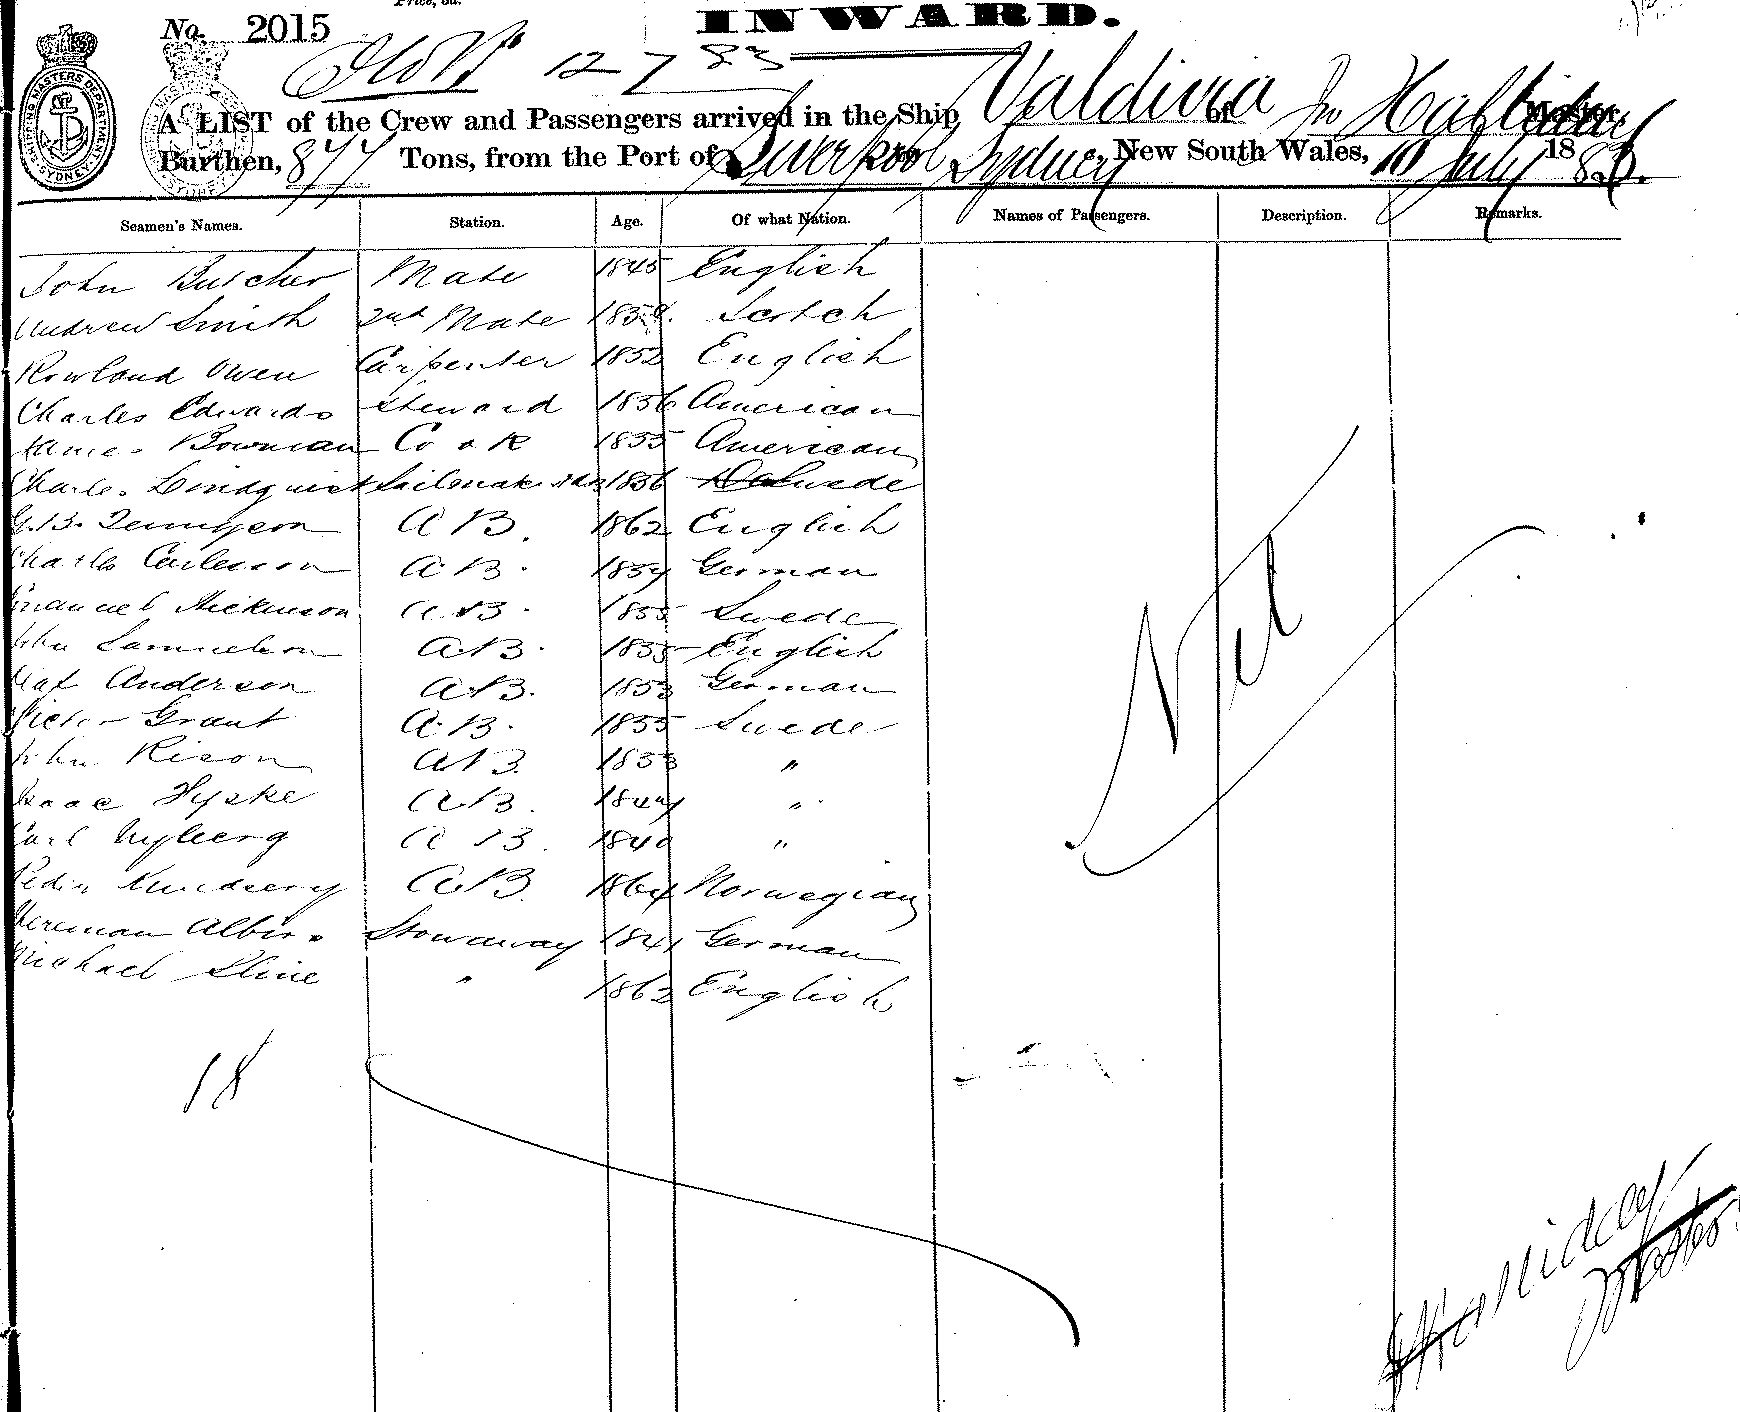 INWARD.
No. 2015
12 7 83
A LIST of the Crew and Passengers arrived in the Ship Valdivia of Jno Halliday Master,
Burthen, 877 Tons, from the Port of Liverpool to Sydney, New South Wales, 10 July 1883.
Seamen's Names. Station. Age. Of what Nation. Names of Passengers. Description. Remarks.
John Butcher Mate 1845 English
Andrew Smith 2nd Mate 185 Scotch
Rowland Owen Carpenter 1852 English
Charles Edwards Steward 1856 American
James Bowman Cook 1855 American
Charles Lindquist Sailmaker 1856 Swede
G.B. Tennyson A B. 1862 English
Charles Carlsson A.B. 185 German
Emanuel Mickinson A.B. 1855 Swede
John Samuelson A.B. 1855 English
Anderson A.B. 1853 German
Victor Grant A.B. 1855 Swede
John A.B. 1853 "
Isaac A.B. 184 "
Carl Nyberg A B. 1840 "
A.B. 1864 Norwegian
Herman Stowaway 1841 German
Michael " 1862 English
Nil
18
Halliday
Master